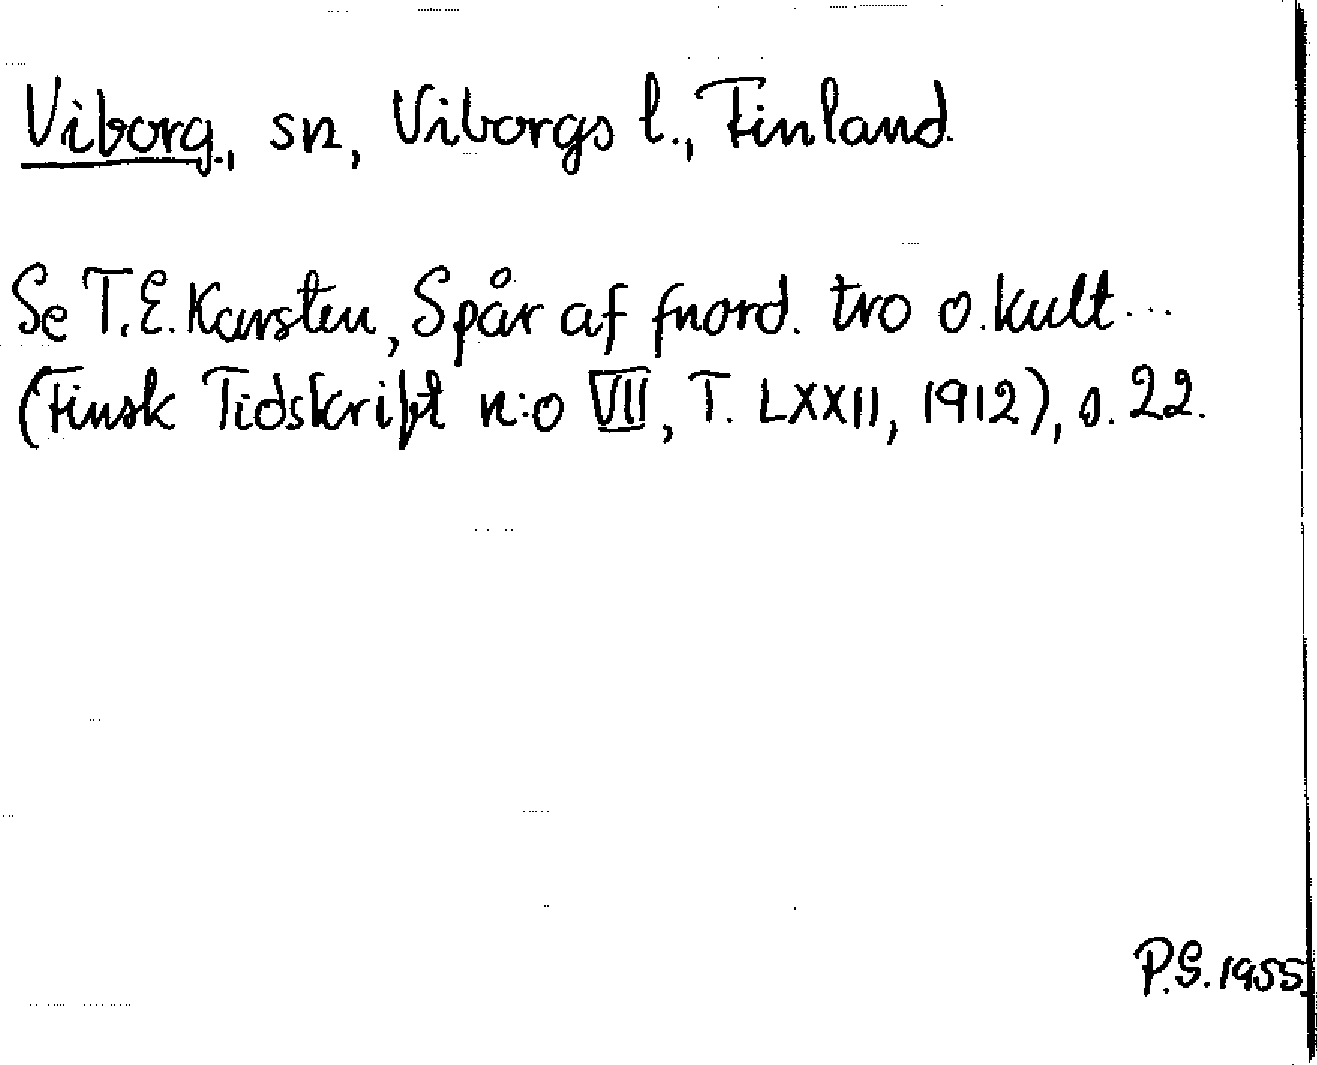 Viborg., sn, Viborgs l., Finland.
Se T.E. Karsten, Spår af fnord. tro o. kult...
(Finsk Tidskrift n:o VII, T. LXXII, 1912), s. 22.
P.S. 1955